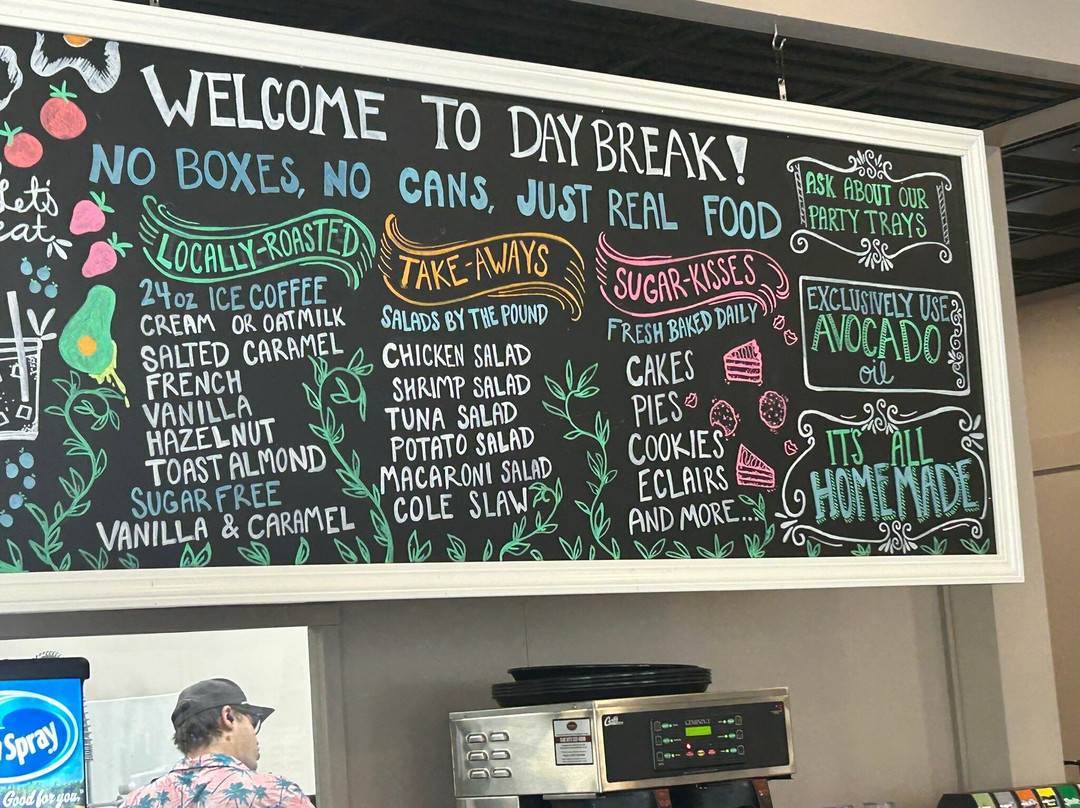 WELCOME TO DAY BREAK!
NO BOXES, NO CANS, JUST REAL FOOD
Let's
eat
LOCALLY-ROASTED
24oz ICE COFFEE
CREAM OR OATMILK
SALTED CARAMEL
FRENCH
VANILLA
HAZELNUT
TOAST ALMOND
SUGAR FREE
VANILLA & CARAMEL
TAKE-AWAYS
SALADS BY THE POUND
CHICKEN SALAD
SHRIMP SALAD
TUNA SALAD
POTATO SALAD
MACARONI SALAD
COLE SLAW
SUGAR-KISSES
FRESH BAKED DAILY
CAKES
PIES
COOKIES
ECLAIRS
AND MORE...
ASK ABOUT OUR
PARTY TRAYS
EXCLUSIVELY USE
AVOCADO
oil
ITS ALL
HOMEMADE
Spray
Good for you.
Curtis
GEMINI